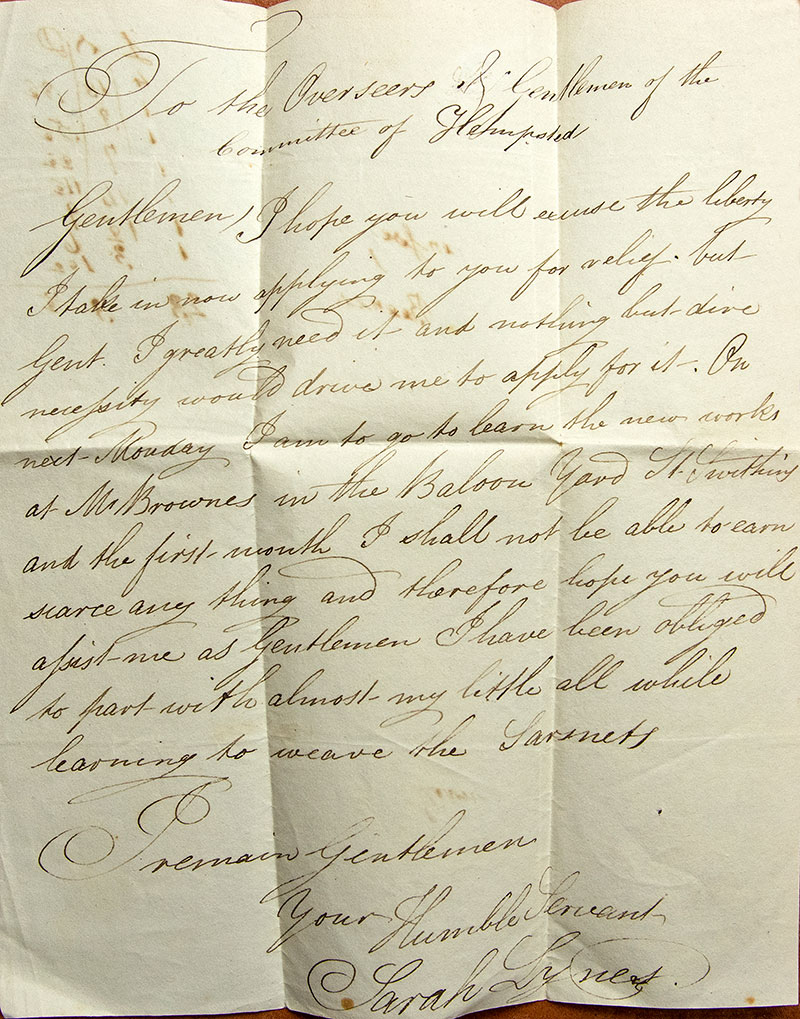 To the Overseers & Gentlemen of the
Committee of Hempsted
Gentlemen, I hope you will excuse the liberty
I take in now applying to you for relief. but
Gent. I greatly need it and nothing but dire
necessity would drive me to apply for it. On
next Monday I am to go to learn the new works
at Mr Brownes in the Baloon Yard St Swithins
and the first month I shall not be able to earn
scarce any thing and therefore hope you will
assist me as Gentlemen I have been obliged
to part with almost my little all while
learning to weave the Sarsnets
I remain Gentlemen
Your Humble Servant
Sarah Lynes.